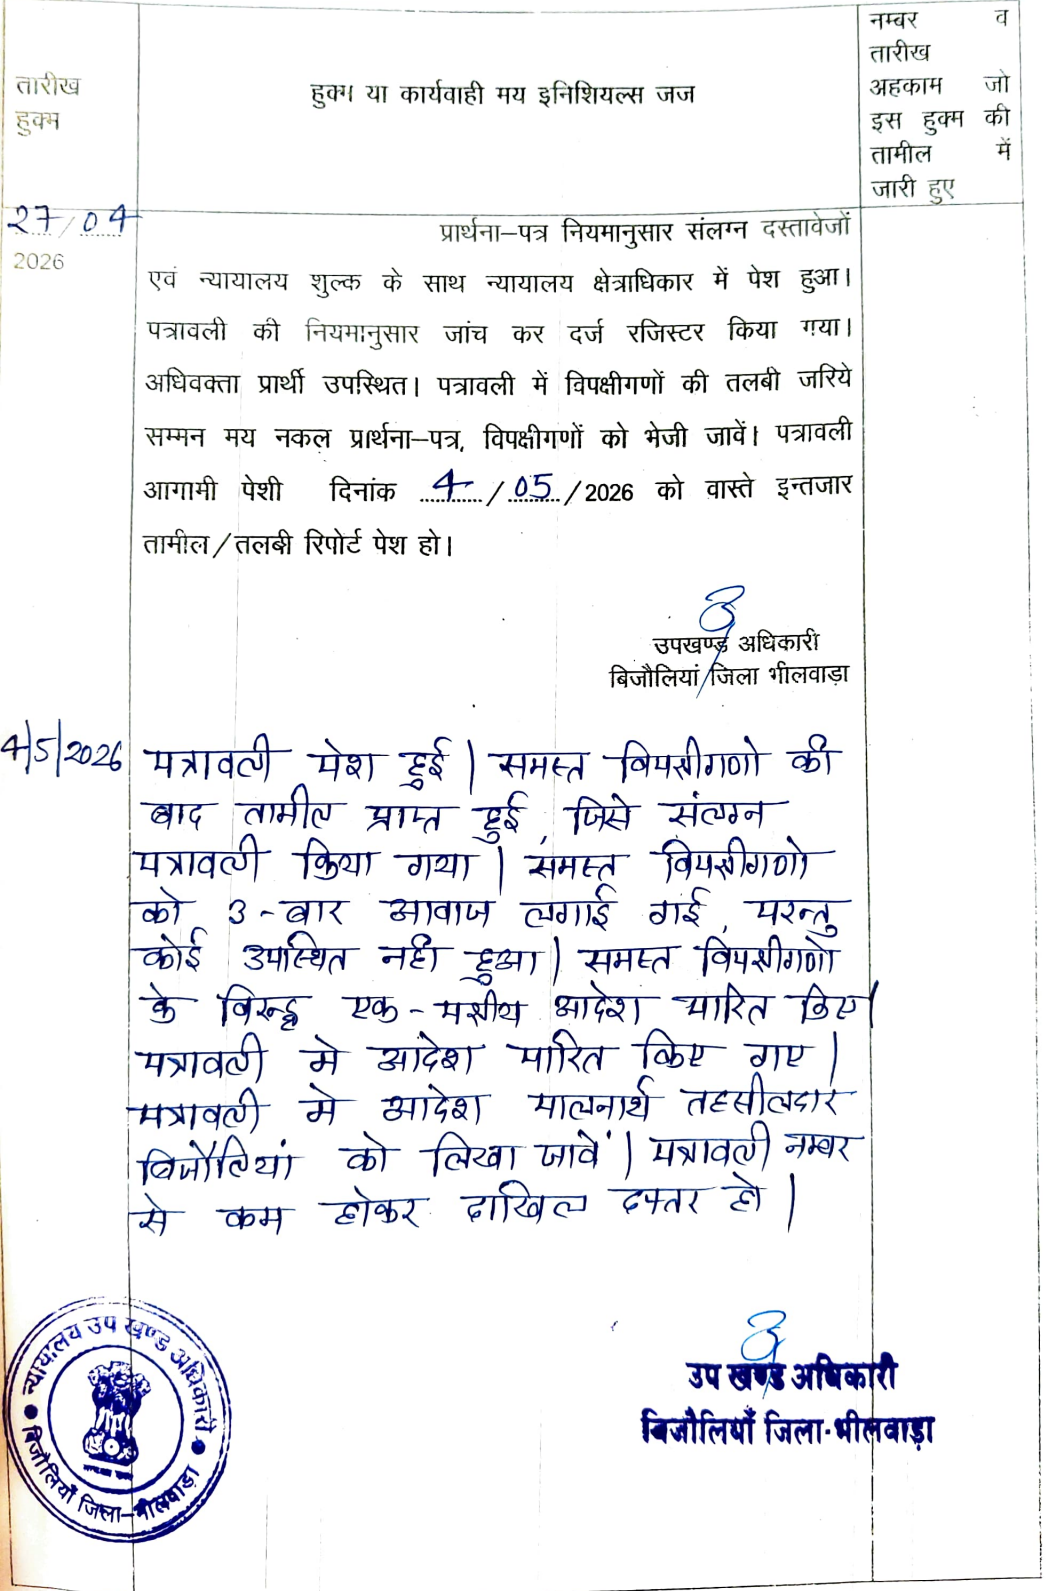 तारीख
हुक्म
हुक्म या कार्यवाही मय इनिशियल्स जज
नम्बर व
तारीख
अहकाम जो
इस हुक्म की
तामील में
जारी हुए
27/04
2026
प्रार्थना–पत्र नियमानुसार संलग्न दस्तावेजों
एवं न्यायालय शुल्क के साथ न्यायालय क्षेत्राधिकार में पेश हुआ।
पत्रावली की नियमानुसार जांच कर दर्ज रजिस्टर किया गया।
अधिवक्ता प्रार्थी उपस्थित। पत्रावली में विपक्षीगणों की तलबी जरिये
सम्मन मय नकल प्रार्थना–पत्र, विपक्षीगणों को भेजी जावें। पत्रावली
आगामी पेशी दिनांक 4/05/2026 को वास्ते इन्तजार
तामील/तलबी रिपोर्ट पेश हो।
उपखण्ड अधिकारी
बिजौलियां जिला भीलवाड़ा
4/5/2026
पत्रावली पेश हुई। समस्त विपक्षीगणो की
बाद तामील प्राप्त हुई, जिसे संलग्न
पत्रावली किया गया। समस्त विपक्षीगणो
को 3-बार आवाज लगाई गई, परन्तु
कोई उपस्थित नही हुआ। समस्त विपक्षीगणो
के विरुद्ध एक-पक्षीय आदेश पारित किए।
पत्रावली मे आदेश पारित किए गए।
पत्रावली मे आदेश पालनार्थ तहसीलदार
बिजौलियां को लिखा जावें। पत्रावली नम्बर
से कम होकर दाखिल दफ्तर हो।
न्यायालय उप खण्ड अधिकारी
बिजौलियाँ जिला–भीलवाड़ा
उप खण्ड अधिकारी
बिजौलियाँ जिला-भीलवाड़ा